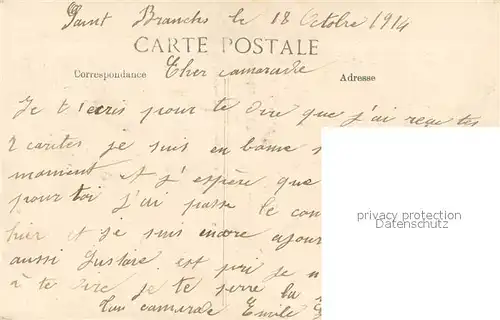 Saint Branchs le 18 Octobre 1914
CARTE POSTALE
Correspondance Cher camarade Adresse
Je t'ecris pour te dire que j'ai reçu tes
2 cartes je suis en bonne s
moment et j'espère que
pour toi J'ai passé le con
hier et je suis encore ajour
aussi Gustave est pris je n
à te dire je te serre la
Ton camarade Emile
privacy protection
Datenschutz